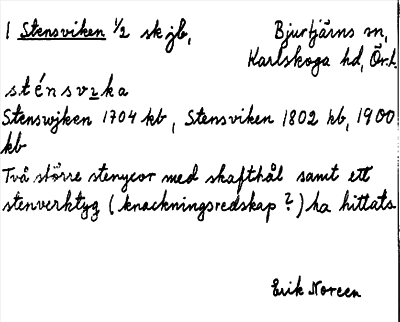 1 Stensviken 1/2 sk jb, Bjurtjärns sn,
Karlskoga hd, Ör. l.
sténsvɪka
Stenswjken 1704 kb, Stensviken 1802 kb, 1900
kb
Två större stenyxor med skafthål samt ett
stenverktyg (knackningsredskap?) ha hittats.
Erik Noreen